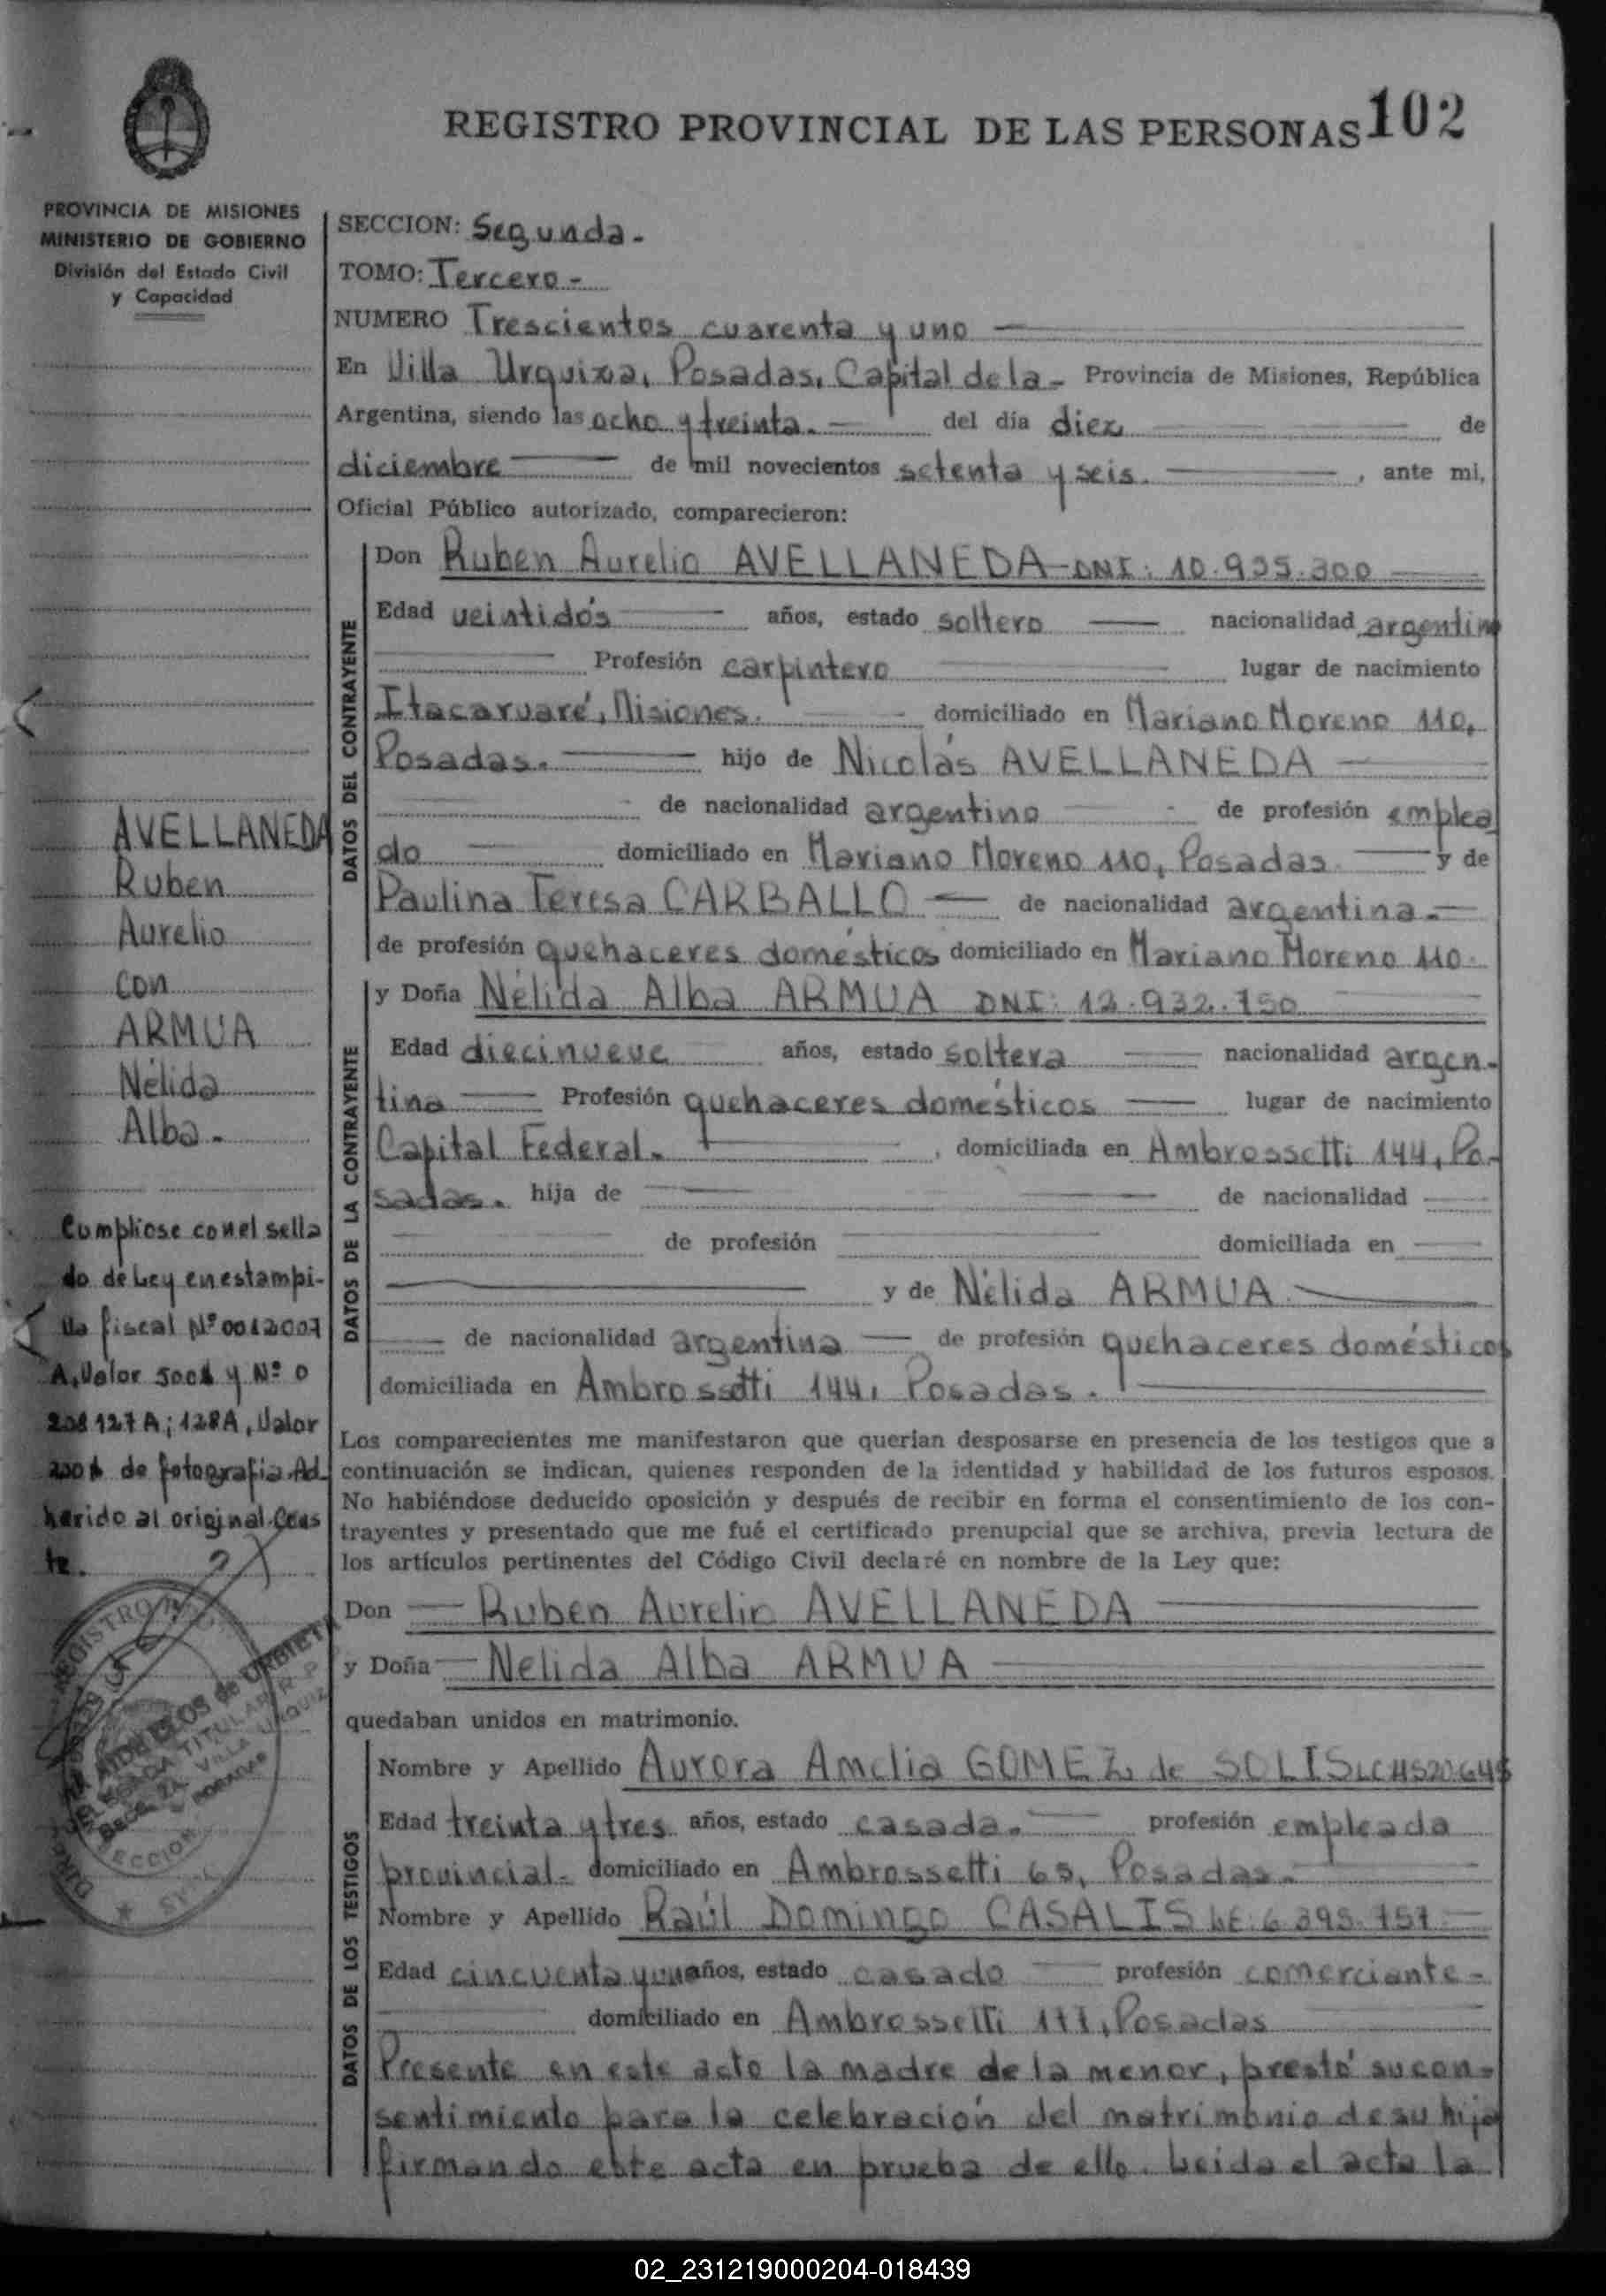 REGISTRO PROVINCIAL DE LAS PERSONAS 102
PROVINCIA DE MISIONES
MINISTERIO DE GOBIERNO
División del Estado Civil
y Capacidad
AVELLANEDA
Ruben
Aurelio
con
ARMUA
Nélida
Alba.-
Cumpliose con el sella
do de Ley en estampi-
lla fiscal Nº 0012007
A, Valor 500$ y Nº 0
208127A; 128A, Valor
200$ de fotografia Ad-
herido al original. Cons
te.
SECCION: Segunda.-
TOMO: Tercero.-
NUMERO Trescientos cuarenta y uno
En Villa Urquiza, Posadas, Capital de la- Provincia de Misiones, República
Argentina, siendo las ocho y treinta.- del día diez de
diciembre de mil novecientos setenta y seis. , ante mi,
Oficial Público autorizado, comparecieron:
DATOS DEL CONTRAYENTE
Don Ruben Aurelio AVELLANEDA-DNI: 10.935.300
Edad veintidós años, estado soltero nacionalidad argentino
Profesión carpintero lugar de nacimiento
Itacaruaré, Misiones. domiciliado en Mariano Moreno 110,
Posadas. hijo de Nicolás AVELLANEDA
de nacionalidad argentino de profesión emplea
do domiciliado en Mariano Moreno 110, Posadas y de
Paulina Teresa CARBALLO de nacionalidad argentina.-
de profesión quehaceres domésticos domiciliado en Mariano Moreno 110.
DATOS DE LA CONTRAYENTE
y Doña Nélida Alba ARMUA DNI: 12.932.750
Edad diecinueve años, estado soltera nacionalidad argen-
tina Profesión quehaceres domésticos lugar de nacimiento
Capital Federal. , domiciliada en Ambrossetti 144, Po-
sadas. hija de de nacionalidad
de profesión domiciliada en
y de Nélida ARMUA
de nacionalidad argentina de profesión quehaceres domésticos
domiciliada en Ambrossetti 144, Posadas.
Los comparecientes me manifestaron que querían desposarse en presencia de los testigos que a
continuación se indican, quienes responden de la identidad y habilidad de los futuros esposos.
No habiéndose deducido oposición y después de recibir en forma el consentimiento de los con-
trayentes y presentado que me fué el certificado prenupcial que se archiva, previa lectura de
los artículos pertinentes del Código Civil declaré en nombre de la Ley que:
Don Ruben Aurelio AVELLANEDA
y Doña Nélida Alba ARMUA
quedaban unidos en matrimonio.
DATOS DE LOS TESTIGOS
Nombre y Apellido Aurora Amelia GOMEZ de SOLIS LC 4520645
Edad treinta y tres años, estado casada.- profesión empleada
provincial.- domiciliado en Ambrossetti 65, Posadas.-
Nombre y Apellido Raúl Domingo CASALIS LE. 6.395.757
Edad cincuenta y un años, estado casado profesión comerciante-
domiciliado en Ambrossetti 177, Posadas
Presente en este acto la madre de la menor, prestó su con-
sentimiento para la celebración del matrimonio de su hija
firmando este acta en prueba de ello. Leida el acta la
02_231219000204-018439